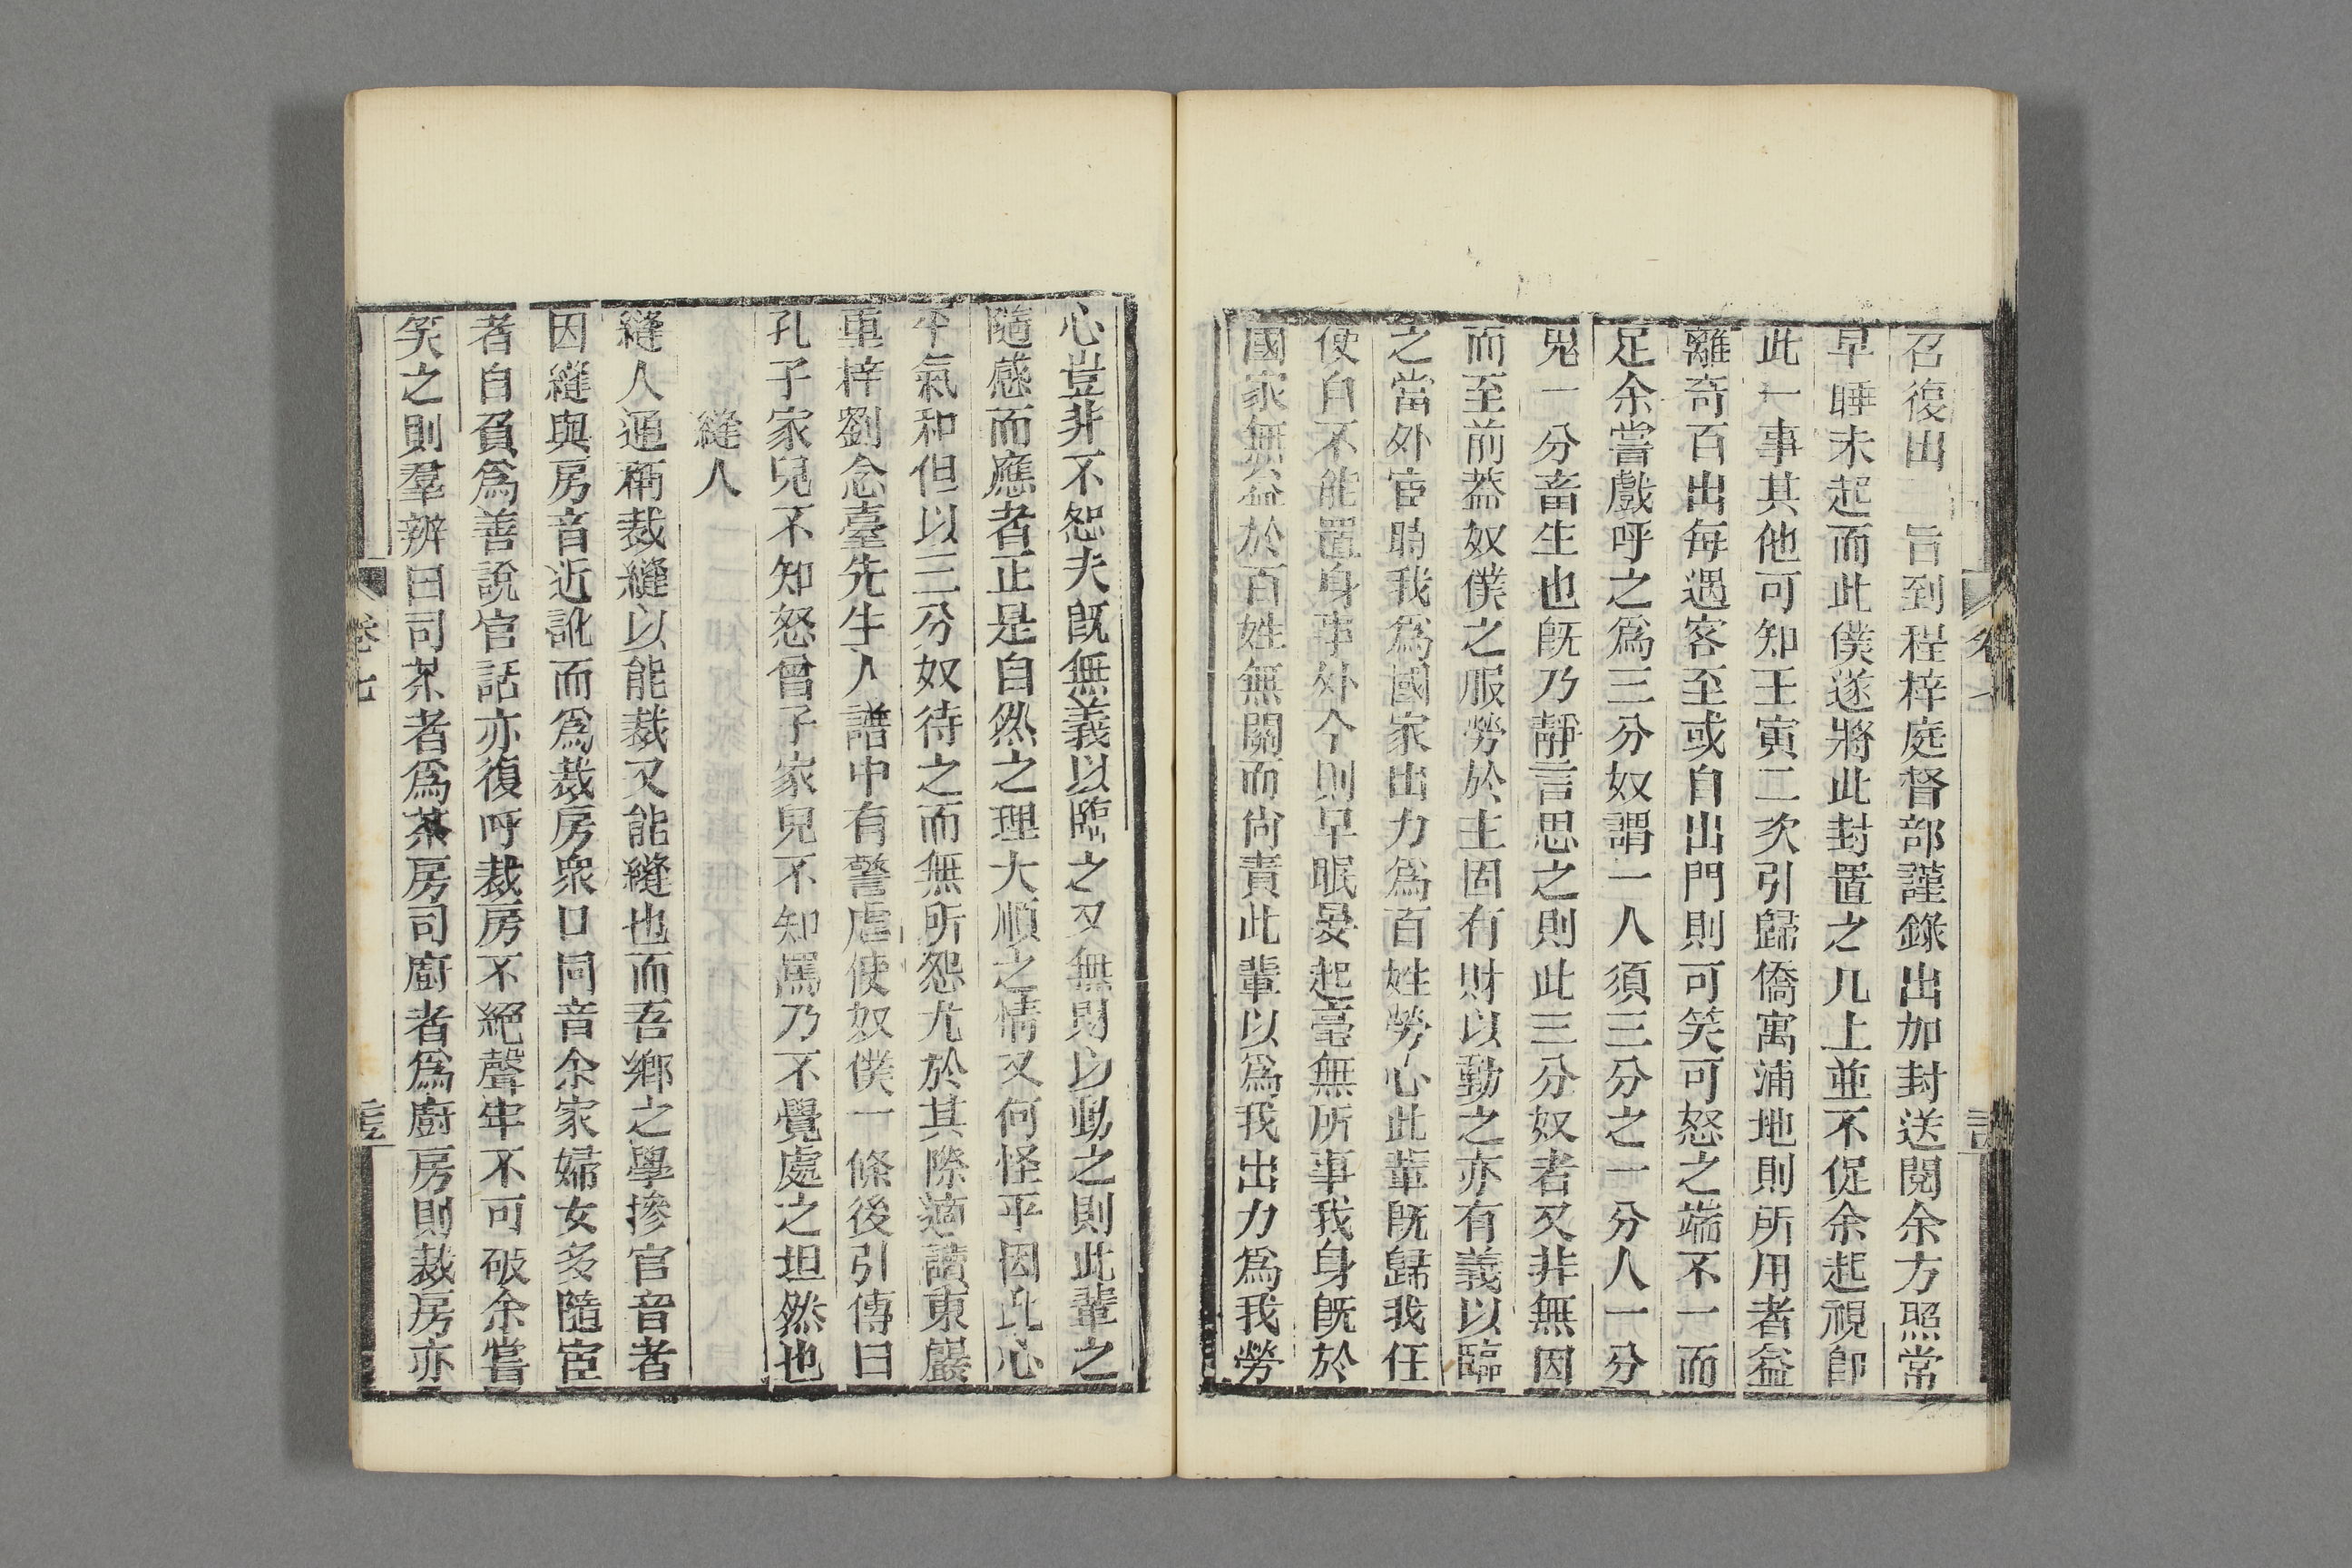 召復出 旨到程梓庭督部謹錄出加封送閱余方照常
早睡未起而此僕遂將此封置之几上並不促余起視卽
此一事其他可知壬寅二次引歸僑寓浦地則所用者益
離奇百出每遇客至或自出門則可笑可怒之端不一而
足余嘗戲呼之爲三分奴謂一人須三分之一分人一分
鬼一分畜生也旣乃靜言思之則此三分奴者又非無因
而至前葢奴僕之服勞於主固有財以動之亦有義以臨
之當外宦時我爲國家出力爲百姓勞心此輩旣歸我任
使自不能置身事外今則早眠晏起毫無所事我身旣於
國家無益於百姓無關而尚責此輩以爲我出力爲我勞
心豈非不恕夫旣無義以臨之又無財以動之則此輩之
隨感而應者正是自然之理大順之情又何怪乎因此心
平氣和但以三分奴待之而無所怨尤於其際適讀東巖
重梓劉念臺先生人譜中有警虐使奴僕一條後引傳曰
孔子家兒不知怒曾子家兒不知罵乃不覺處之坦然也
縫人
縫人通稱裁縫以能裁又能縫也而吾鄉之學摻官音者
因縫與房音近訛而爲裁房衆口同音余家婦女多隨宦
者自負爲善說官話亦復呼裁房不絕聲牢不可破余嘗
笑之則羣辨曰司茶者爲茶房司廚者爲廚房則裁房亦
卷七